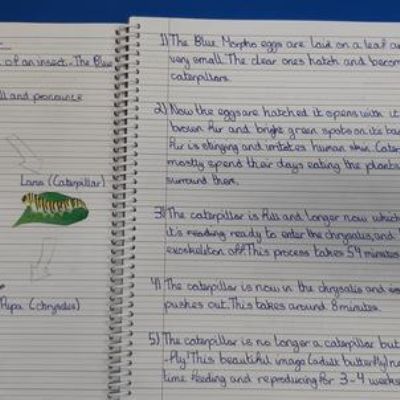 of an insect - The Blue
ll and pronounce
Larva (Caterpillar)
Pupa (chrysalis)
1) The Blue Morpho eggs are laid on a leaf a
very small. The clear ones hatch and becom
caterpillars.
2) Now the eggs are hatched it opens with it
brown fur and bright green spots on its ba
fur is stinging and irritates human skin. Cater
mostly spend their days eating the plants
surround them.
3) The caterpillar is full and longer now which
it's reading ready to enter the chrysalis, and
exoskeleton off. This process takes 54 minutes
4) The caterpillar is now in the chrysalis and
pushes out. This takes around 8 minutes.
5) The caterpillar is no longer a caterpillar but
-fly! This beautiful imago (adult butterfly) n
time feeding and reproducing for 3-4 weeks